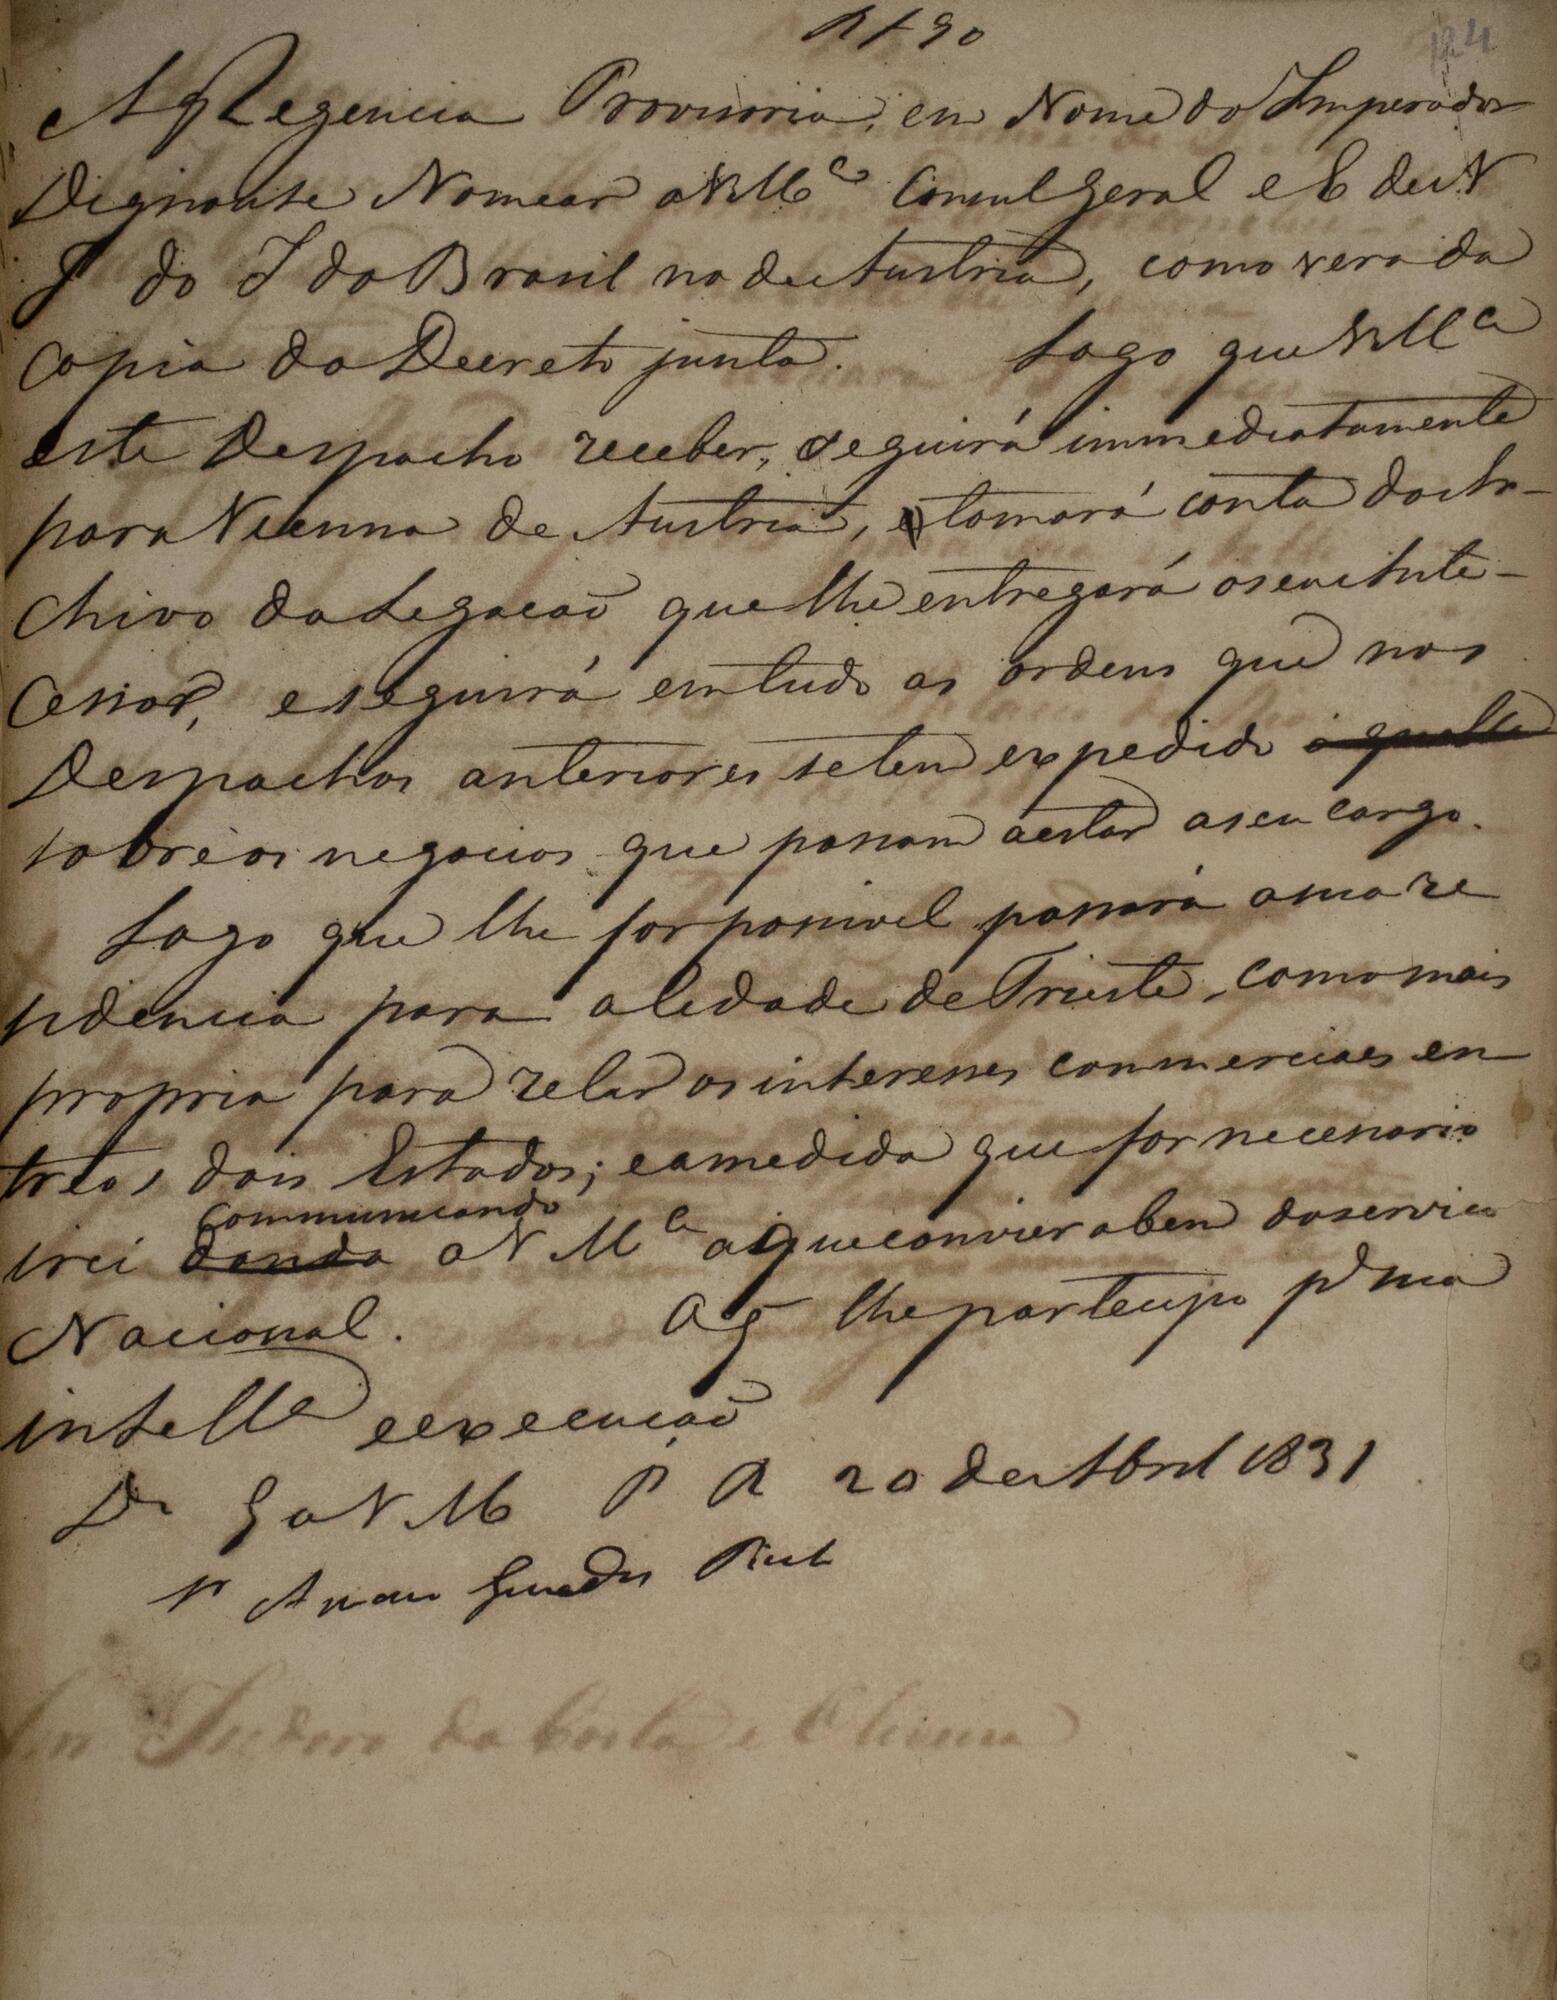 124
A Regencia Provisoria, em Nome do Imperador
Dignouse Nomear a VMce Consul Geral e E de N
I do I do Brasil no de Austria, como verá da
Copia do Decreto junta. Logo que VMce
este Despacho receber, seguirá immediatamente
para Vienna de Austria, e tomará conta do Ar-
chivo da Legacaõ que lhe entregará o seu Ante-
cessor, e seguirá em tudo as ordens que nos
Despachos anteriores se tem expedido
sobre os negocios que passam a estar a seu cargo.
Logo que lhe for possivel passará a sua re
sidencia para a Cidade de Trieste, como mais
propria para zelar os interesses commerciaes en
tre os dois Estados; e a medida que for necessario
communicando
irei danda a VMce o que convier a bem do serviço
Nacional. O q lhe participo pa sua
intella e execuçaõ
Ds G a V M P R 20 de Abril 1831
Sr Guedes
Sr Isidoro da Costa e Oliveira